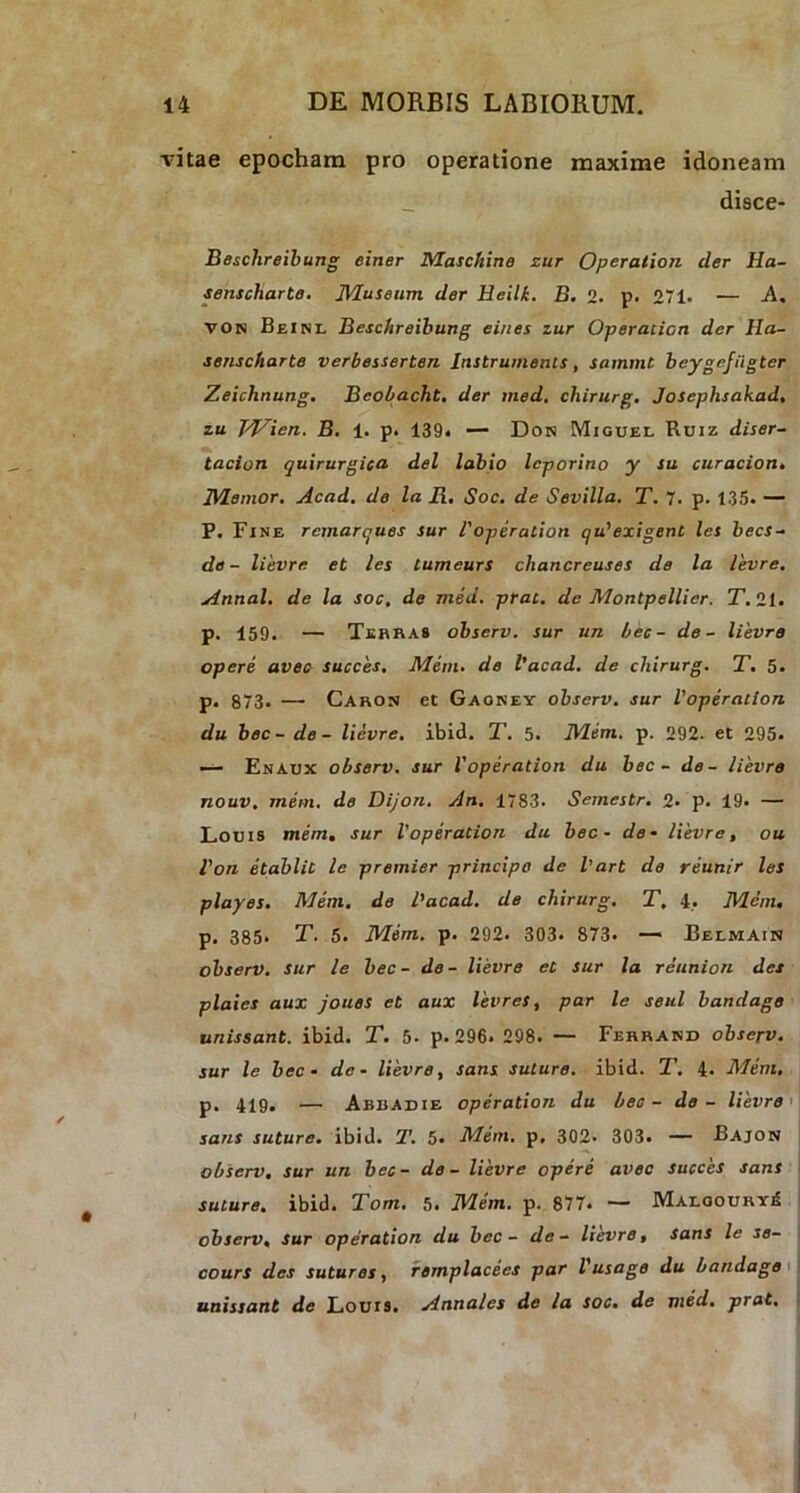 14 DE MORBIS LABIORUM.
vitae epocham pro operatione maxime idoneam
disce-
Beschreibung einer Maschine zur Operation der Ha-
senscharte. Museum der Heilk. B. 2. p. 271. — A.
VON BEINL Beschreibung eines zur Operation der Ha-
senscharte verbesserten Instruments, sammt beygefügter
Zeichnung. Beobacht. der med. chirurg. Josephsakad.
zu Wien. B. 1. p. 139. — DON MIGUEL RUIZ diser-
tacion quirurgica del labio leporino y su curacion.
Memor. Acad. de la R. Soc. de Sevilla. T. 7. p. 135. —
P. FINE remarques sur l'opération qu'exigent les becs-
de-lièvre et les tumeurs chancreuses de la lèvre.
Annal. de la soc. de méd. prat. de Montpellier. T. 21.
p. 159. — TERRAS observ. sur un bec-de-lièvre
operé avec succès. Mém. de l'acad. de chirurg. T. 5.
p. 873. — CARON et GAONEY observ. sur l'opération
du bec-de-lièvre. ibid. T. 5. Mém. p. 292. et 295.
— ENAUX observ. sur l'opération du bec-de-lièvre
nouv. mém. de Dijon. An. 1783. Semestr. 2. p. 19. —
LOUIS mém. sur l'opération du bec-de-lièvre, ou
l'on établit le premier principe de l'art de réunir les
playes. Mém. de l'acad. de chirurg. T. 4. Mém.
p. 385. T. 5. Mém. p. 292. 303. 873. — BELMAIN
observ. sur le bec-de-lièvre et sur la réunion des
plaies aux joues et aux lèvres, par le seul bandage
unissant. ibid. T. 5. p. 296. 298. — FERRAND observ.
sur le bec-de-lièvre, sans suture. ibid. T. 4. Mém.
p. 419. — ABBADIE opération du bec-de-lièvre
sans suture. ibid. T. 5. Mém. p. 302. 303. — BAJON
observ. sur un bec-de-lièvre opéré avec succès sans
suture. ibid. Tom. 5. Mém. p. 877. — MALGOURYÉ
observ. sur opération du bec-de-lièvre, sans le se-
cours des sutures, remplacées par l'usage du bandage
unissant de LOUIS. Annales de la soc. de méd. prat.